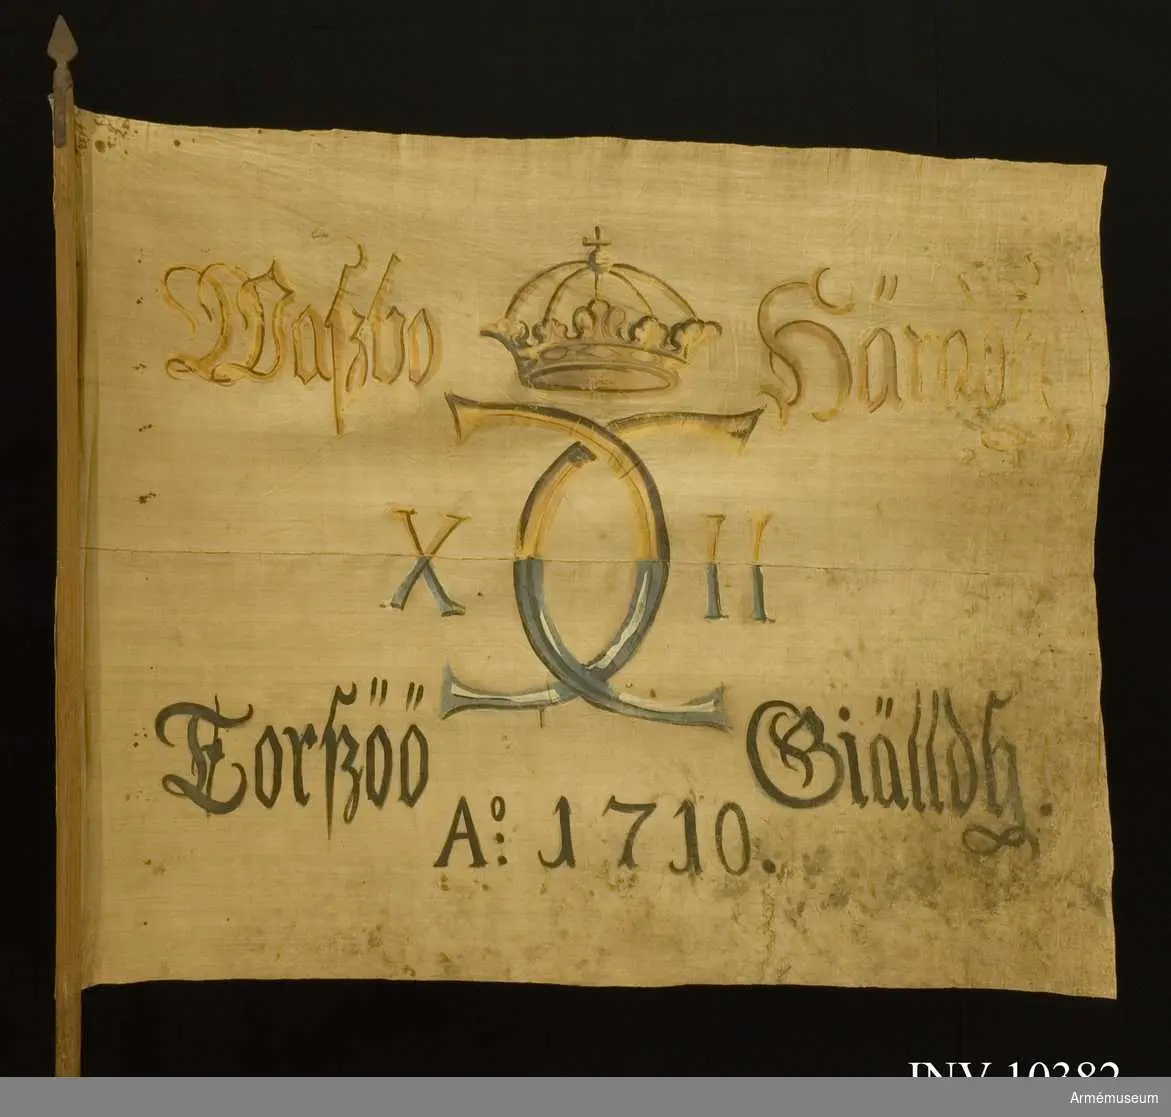 Waszbo Häradh
X CC II
Torszöö Giälldh.
Ao: 1710.
INV 10382
Armémuseum